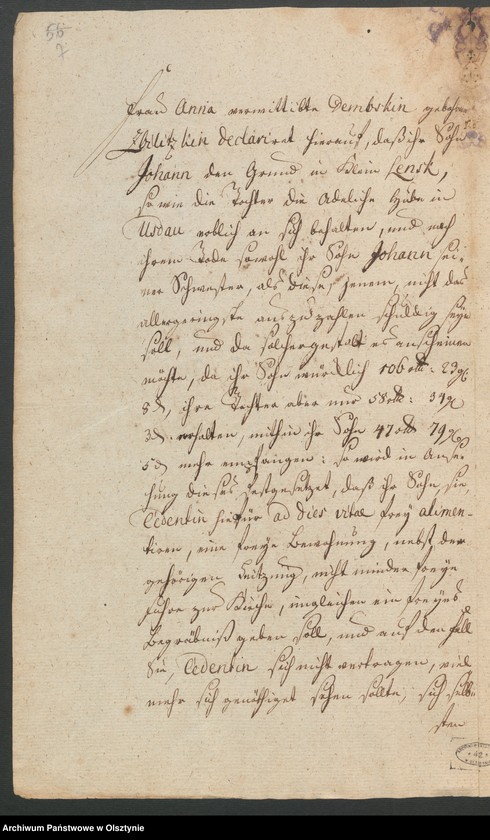 55
7
Frau Anna verwittibte Dembskin gebohrne
declariret hierauf, daß ihr Sohn
Johann den Grund in Klein Lensk,
so wie die Tochter die Adeliche Hube in
Usdau erblich an sich behalten, und nach
ihrem Tode sowohl ihr Sohn Johann sei-
ner Schwester, als diese jenem, nicht das
allergeringste auszuzahlen schuldig seyn
soll, und da solchergestalt es anscheinen
möchte, da ihr Sohn würcklich 106 23
8 ihre Tochter aber nur 58
3 erhalten, mithin ihr Sohn 47
5 mehr empfangen: so wird in Anse-
hung dieses festgesetzet, daß ihr Sohn, sie,
Cedentin hiefür ad dies vitae frey alimen-
tiren, eine freye Bewohnung, nebst der
gehörigen nicht minder freye
Fuhre zur Kirche, imgleichen ein freyes
Begräbniß geben soll, und auf den Fall
Sie, Cedentin sich nicht vertragen, viel
mehr sich genöthiget sehen sollte, sich selb
sten
42
Archiwum Państwowe w Olsztynie